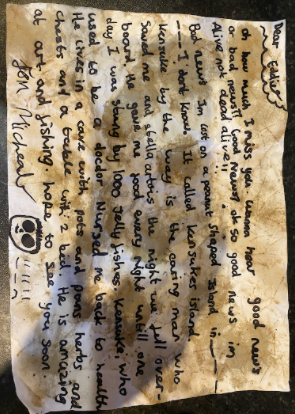 Dear Eddie
oh how much I miss you. wanna hear good news
or bad news!! Good news? ok so good news im
Alive not dead alive!!
Bad news Im lost on a peanut shaped Island in
I dont know. It called kensukes island.
Kensuke by the way is the caring man who
Saved me and stella artois the night we fell over-
board. He gave me food every night untill one
day I was stung by 1000 Jelly fishes. Kensuke, who
used to be a doctor Nursed me back to health
He lives in a cave with pots and pans herbs and
chests and a table with 2 bed. He is amazing
at art and fishing. hope to see you soon
from Micheal